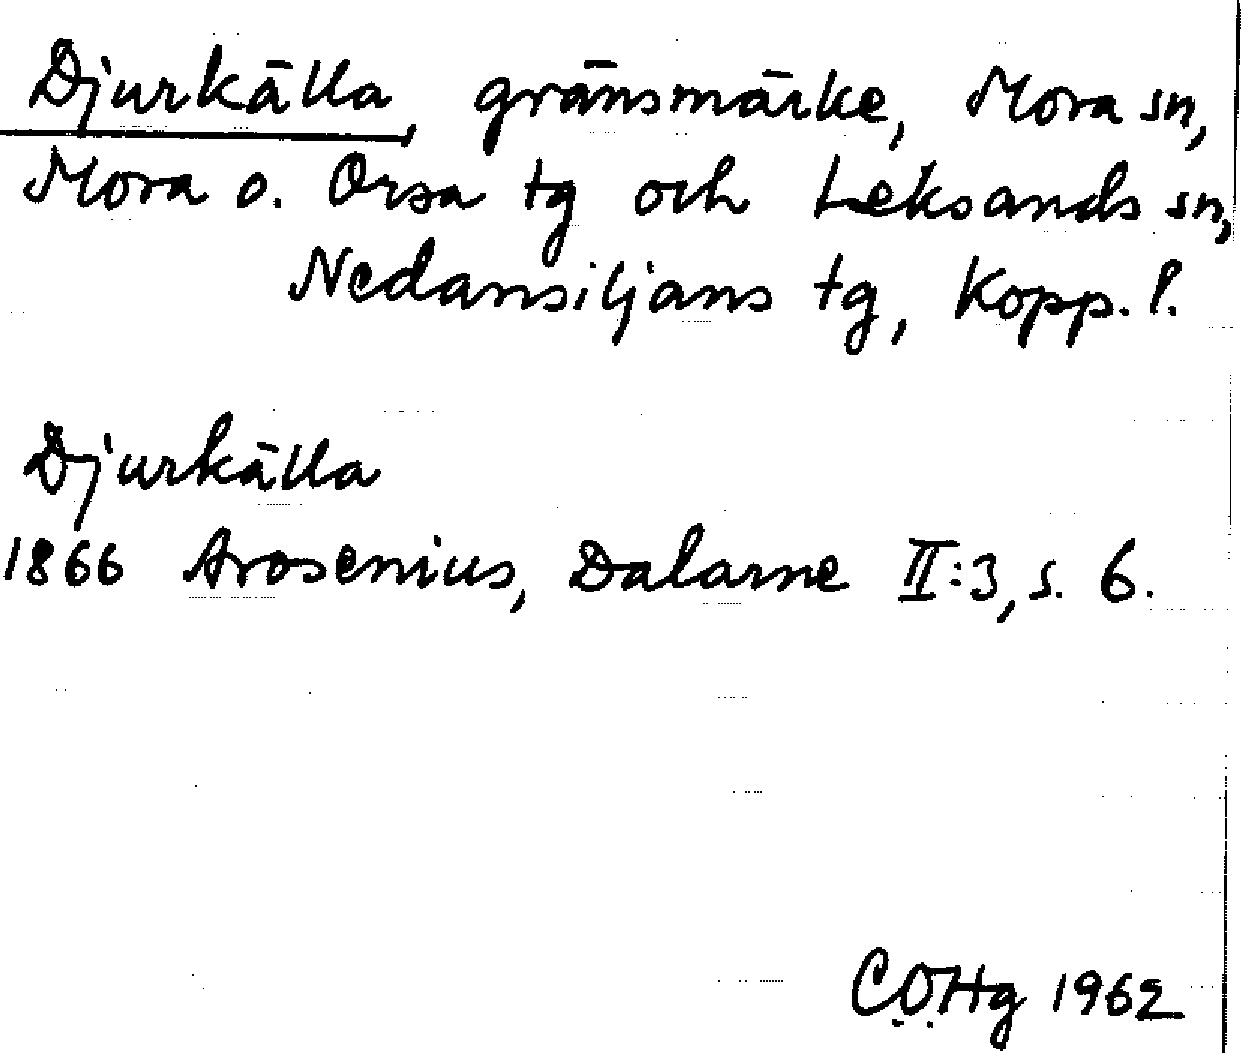 Djurkälla, gränsmärke, Mora sn,
Mora o. Orsa tg och Leksands sn,
Nedansiljans tg, Kopp. l.
Djurkälla
1866 Arosenius, Dalarne II:3, s. 6.
C.O.Hg 1962